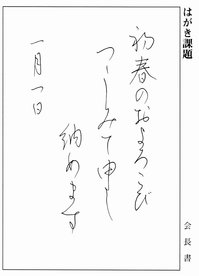 はがき課題
初春のおよろこび
つゝしみて申し
納めます
一月一日
会長書